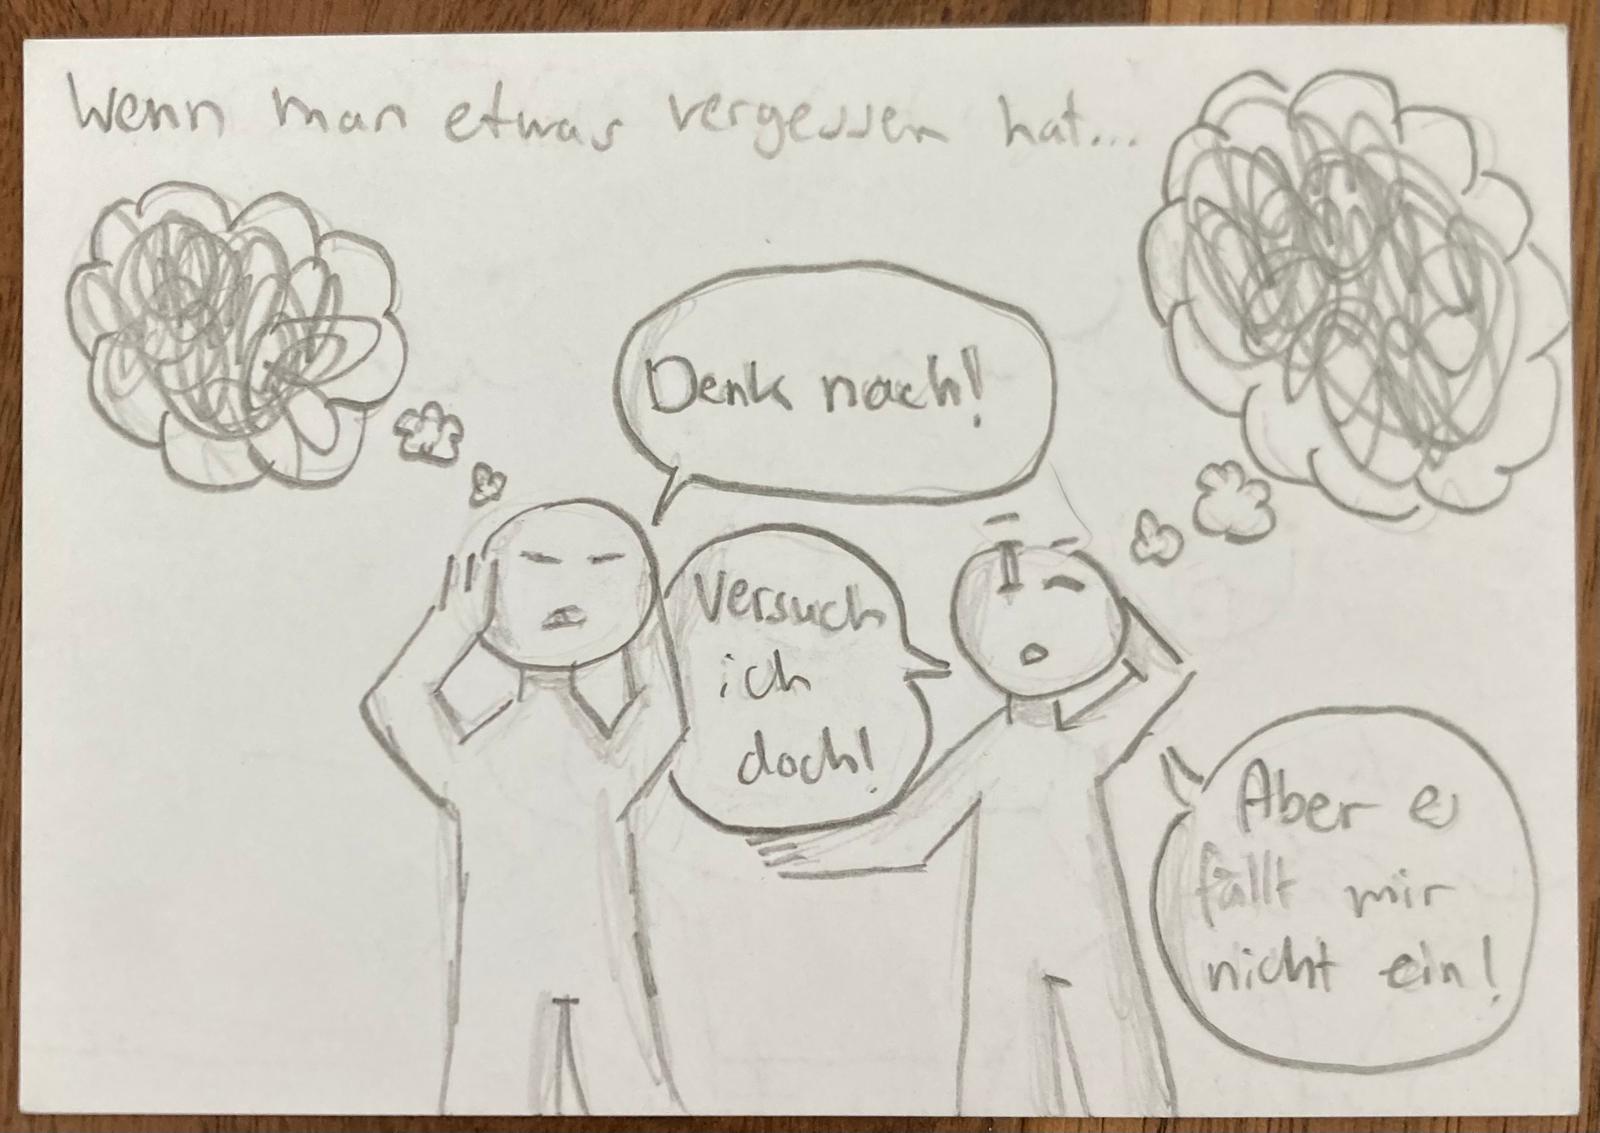 Wenn man etwas vergessen hat...
Denk nach!
Versuch
ich
doch!
Aber es
fällt mir
nicht ein!